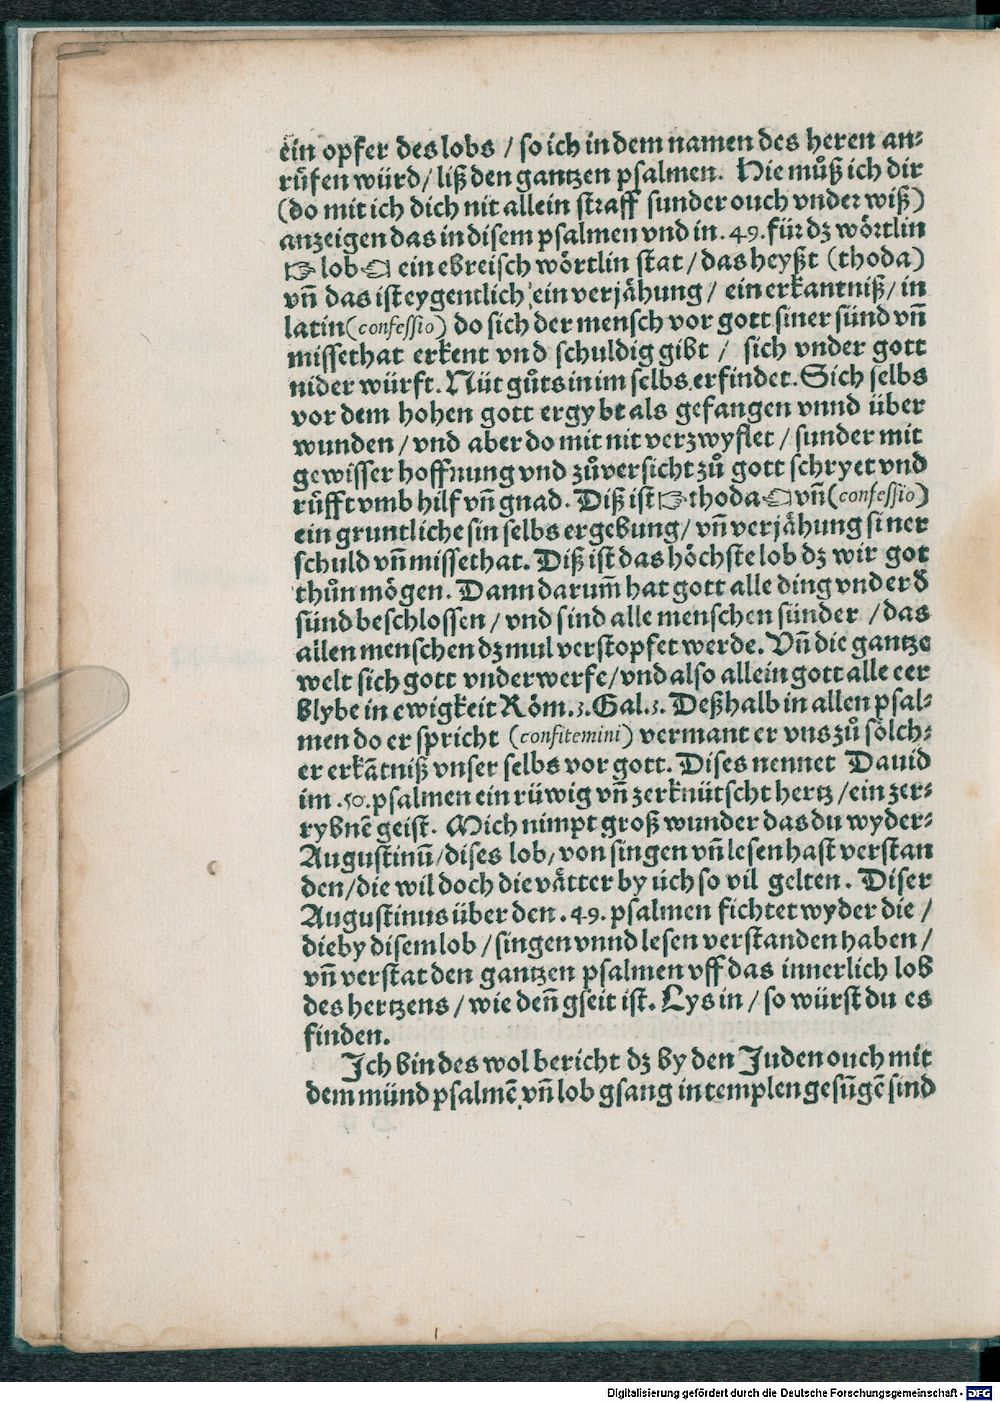 ein opfer des lobs / so ich in dem namen des heren an⸗
rüfen würd / liß den gantzen psalmen. Hie můß ich dir
(do mit ich dich nit allein straff sunder ouch vnder wiß)
anzeigen das in disem psalmen vnd in .49. für dz wörtlin
☞ lob ☜ ein ebreisch wörtlin stat / das heyßt (thoda)
vñ das ist eygentlich ein verjähung / ein erkantniß / in
latin (confessio) do sich der mensch vor gott siner sünd vñ
missethat erkent vnd schuldig gibt / sich vnder gott
nider würft. Nüt gůts in im selbs erfindet. Sich selbs
vor dem hohen gott ergybt als gefangen vnnd über
wunden / vnd aber do mit nit verzwyflet / sunder mit
gewisser hoffnung vnd zůversicht zů gott schryet vnd
rüfft vmb hilf vñ gnad. Diß ist ☞ thoda ☜ vñ (confessio)
ein gruntliche sin selbs ergebung / vñ verjähung siner
schuld vñ missethat. Diß ist das höchste lob dz wir got
thůn mögen. Dann darum̃ hat gott alle ding vnder d̕
sünd beschlossen / vnd sind alle menschen sünder / das
allen menschen dz mul verstopfet werde. Vñ die gantze
welt sich gott vnderwerfe / vnd also allein gott alle eer
blybe in ewigkeit Röm.3. Gal.3. Deßhalb in allen psal⸗
men do er spricht (confitemini) vermant er vns zů sölch⸗
er erkãtniß vnser selbs vor gott. Dises nennet Dauid
im .50. psalmen ein rüwig vñ zerknütscht hertz / ein zer⸗
rybnẽ geist. Mich nimpt groß wunder das du wyder⸗
Augustinũ / dises lob / von singen vñ lesen hast verstan
den / die wil doch die vätter by üch so vil gelten. Diser
Augustinus über den .49. psalmen fichtet wyder die /
die by disem lob / singen vnnd lesen verstanden haben /
vñ verstat den gantzen psalmen vff das innerlich lob
des hertzens / wie deñ gseit ist. Lys in / so würst du es
finden.
Ich bin des wol bericht dz by den Juden ouch mit
dem münd psalmẽ vñ lob gsang in templen gesũgẽ sind
Digitalisierung gefördert durch die Deutsche Forschungsgemeinschaft - DFG